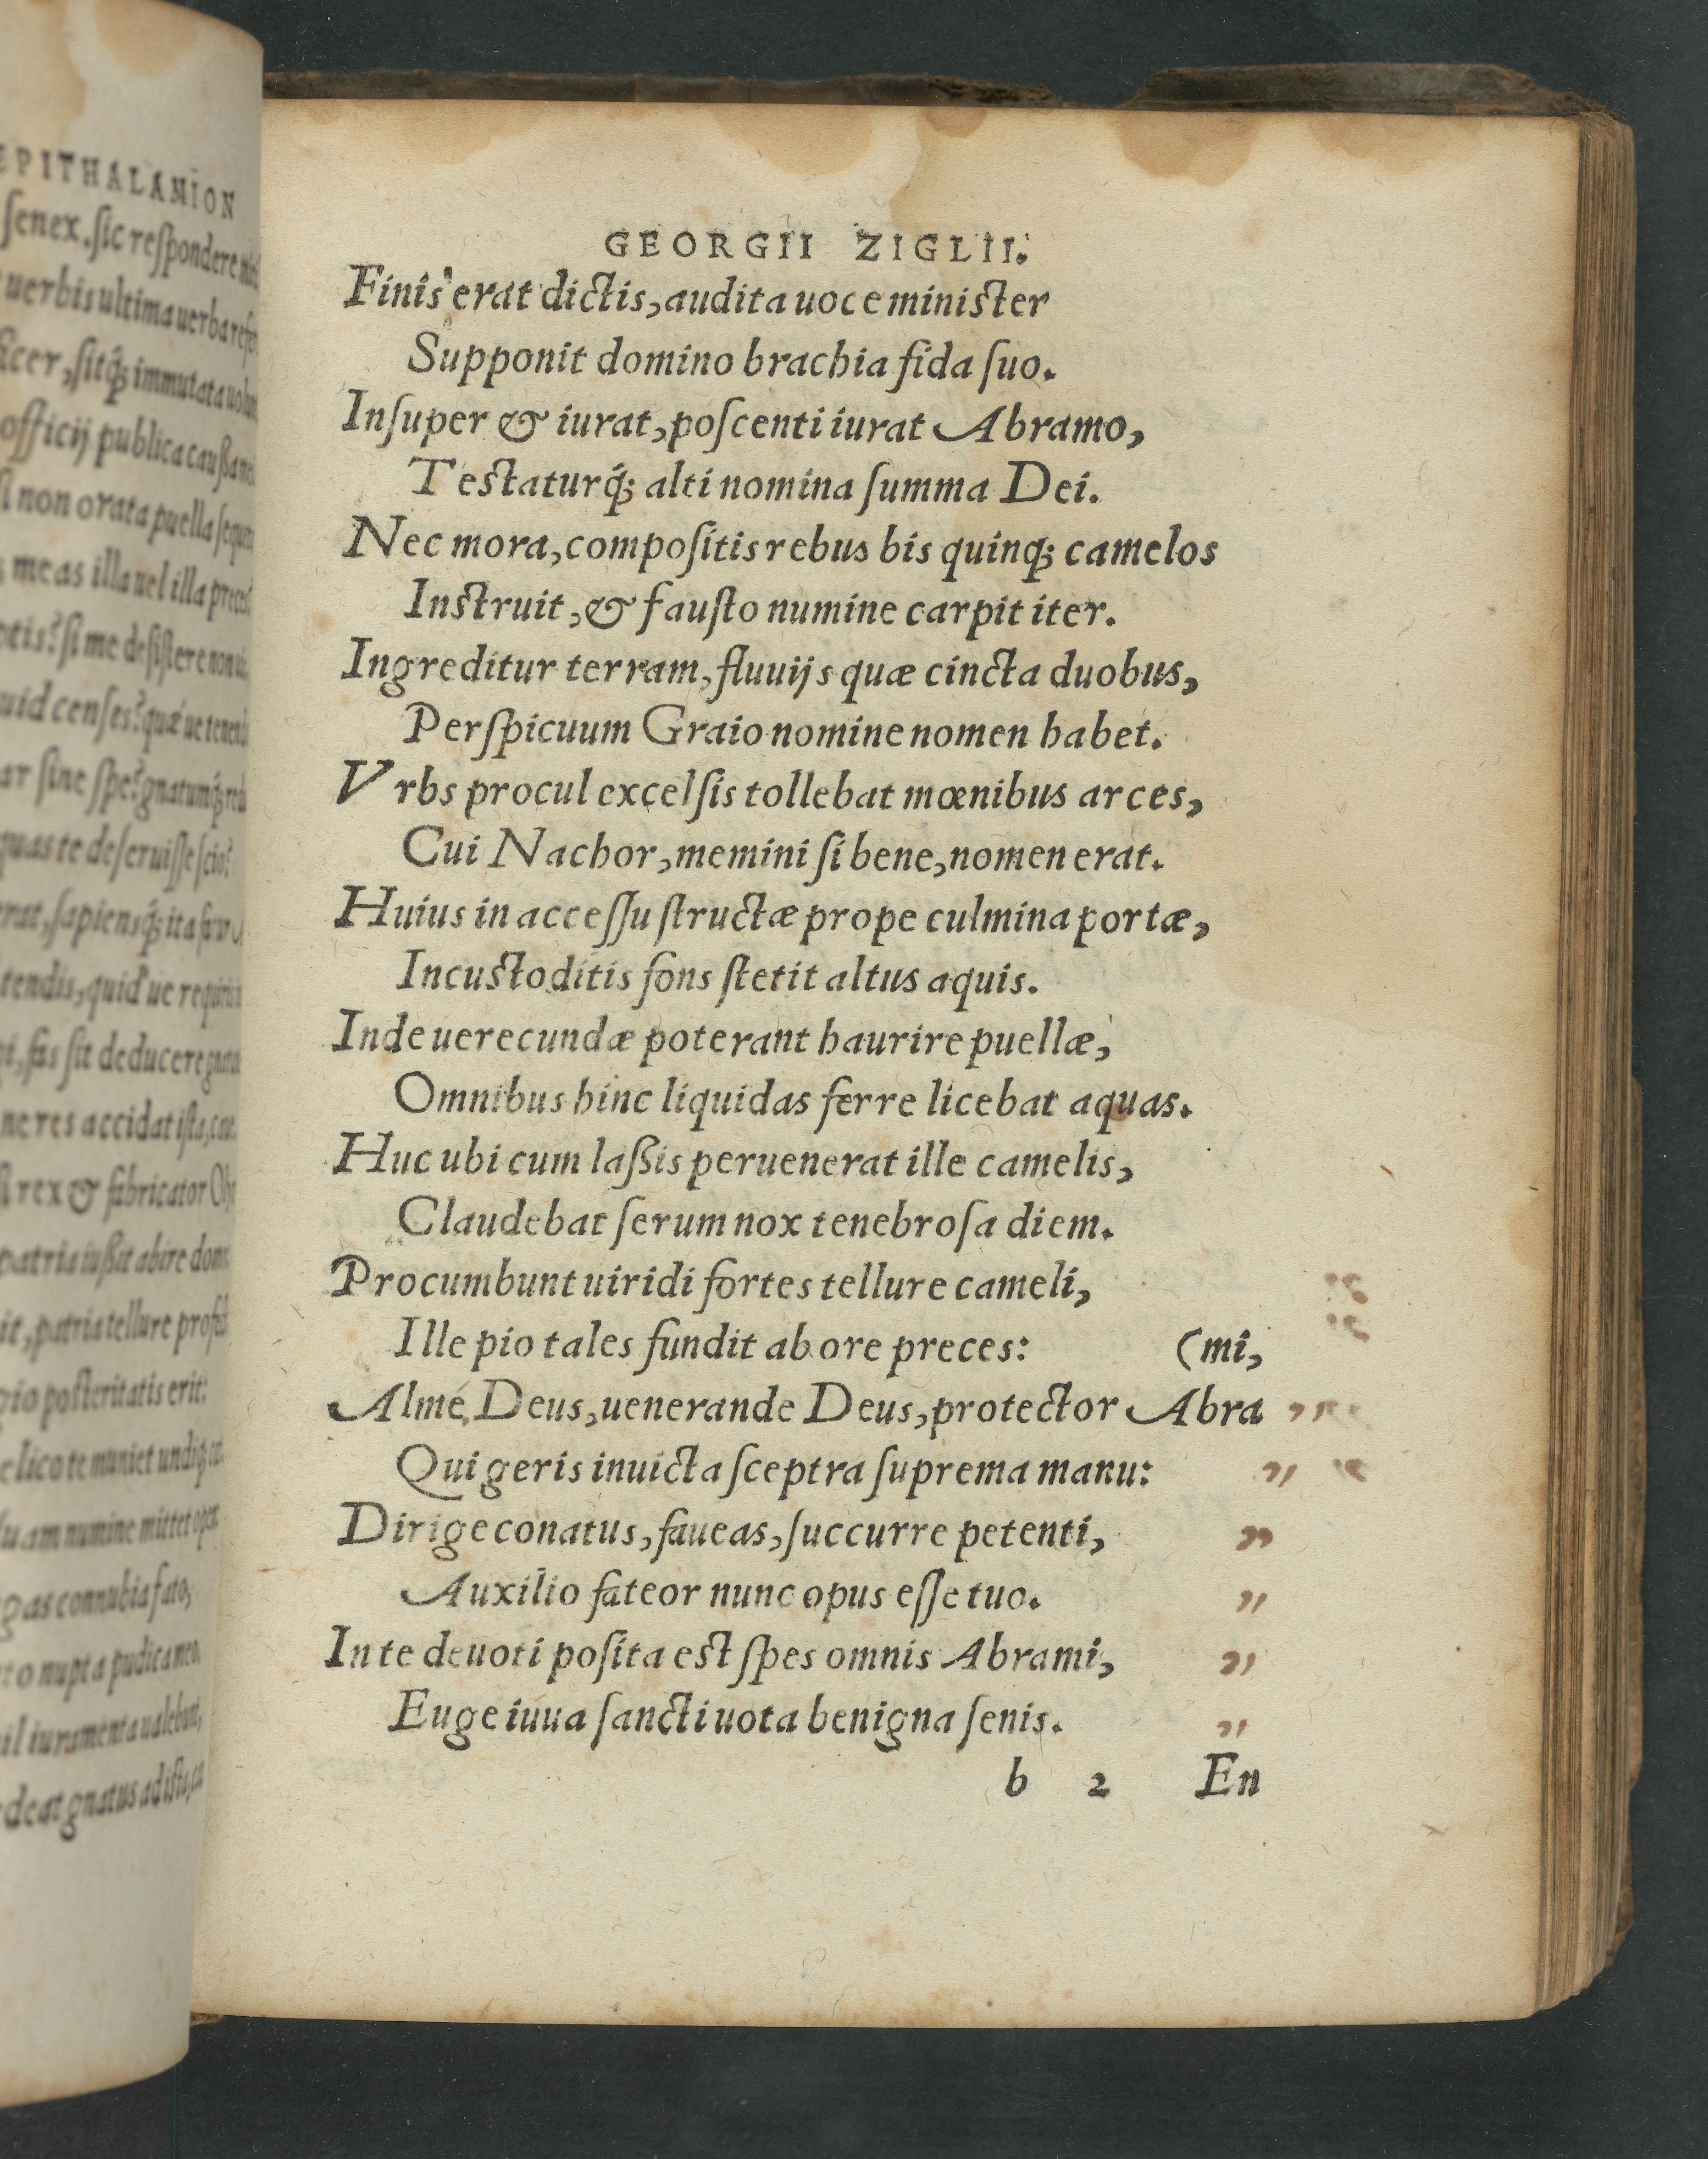 EPITHALAMION
senex. sic respondere
uerbis ultima uerba
sitq́; immutata
officij publica
non orata puella
meas illa uel illa preces
si me desistere non
quid censes? quæ ue
sine spe? gnatumq́;
quas te deseruisse scio?
sapiensq́; ita
tendis, quid ue
fas sit deducere
ne res accidat ista,
rex & fabricator
patria iußit abire
patria tellure
posteritatis erit:
te muniet undiq;
numine mittet
connubia fato,
nupta pudica
iuramenta ualebut,
gnatus
GEORGII ZIGLII.
Finis erat dictis, audita uoce minister
Supponit domino brachia fida suo.
Insuper & iurat, poscenti iurat Abramo,
Testaturq́; alti nomina summa Dei.
Nec mora, compositis rebus bis quinq; camelos
Instruit, & fausto numine carpit iter.
Ingreditur terram, fluuijs quæ cincta duobus,
Perspicuum Graio nomine nomen habet.
Vrbs procul excelsis tollebat mœnibus arces,
Cui Nachor, memini si bene, nomen erat.
Huius in accessu structæ prope culmina portæ,
Incustoditis fons stetit altus aquis.
Inde uerecundæ poterant haurire puellæ,
Omnibus hinc liquidas ferre licebat aquas.
Huc ubi cum laßis peruenerat ille camelis,
Claudebat serum nox tenebrosa diem.
Procumbunt uiridi fortes tellure cameli,
Ille pio tales fundit ab ore preces: (mi,
Alme, Deus, uenerande Deus, protector Abra ,,
Qui geris inuicta sceptra suprema manu: ,,
Dirige conatus, faueas, succurre petenti, ,,
Auxilio fateor nunc opus esse tuo. ,,
In te deuoti posita est spes omnis Abrami, ,,
Euge iuua sancti uota benigna senis. ,,
b 2 En